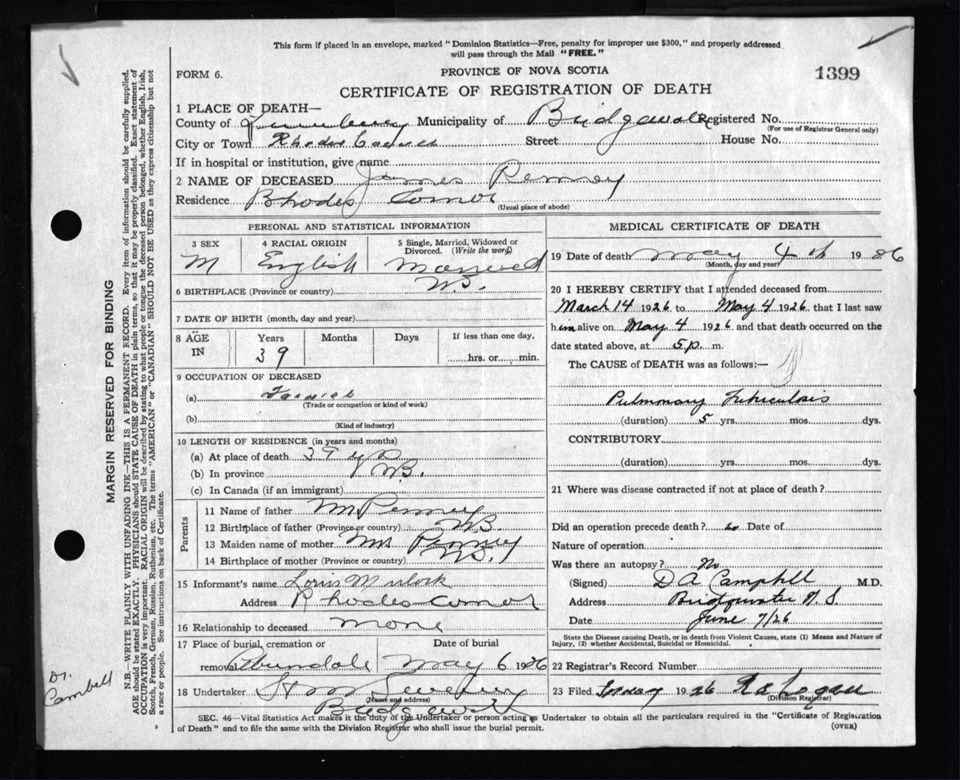 This form if placed in an envelope, marked "Dominion Statistics—Free, penalty for improper use $300," and properly addressed
will pass through the Mail "FREE."
FORM 6.
PROVINCE OF NOVA SCOTIA
1399
CERTIFICATE OF REGISTRATION OF DEATH
1 PLACE OF DEATH—
County of Municipality of Bridgewater Registered No.
(For use of Registrar General only)
City or Town Rhodes Street House No.
If in hospital or institution, give name
2 NAME OF DECEASED James
Residence Rhodes Cornor
(Usual place of abode)
PERSONAL AND STATISTICAL INFORMATION
3 SEX 4 RACIAL ORIGIN 5 Single, Married, Widowed or Divorced. (Write the word)
M English Married
6 BIRTHPLACE (Province or country)
7 DATE OF BIRTH (month, day and year)
8 AGE IN Years Months Days If less than one day,
39 hrs. or min.
9 OCCUPATION OF DECEASED
(a)
(Trade or occupation or kind of work)
(b)
(Kind of industry)
10 LENGTH OF RESIDENCE (in years and months)
(a) At place of death
(b) In province
(c) In Canada (if an immigrant)
Parents
11 Name of father
12 Birthplace of father (Province or country)
13 Maiden name of mother
14 Birthplace of mother (Province or country)
15 Informant's name Louis
Address Rhodes Cornor
16 Relationship to deceased none
17 Place of burial, cremation or removal Date of burial
May 6 1926
18 Undertaker
(Name and address)
MEDICAL CERTIFICATE OF DEATH
19 Date of death May 4th 1926
(Month, day and year)
20 I HEREBY CERTIFY that I attended deceased from
March 14 1926 to May 4 1926 that I last saw
him alive on May 4 1926 and that death occurred on the
date stated above, at 5 p. m.
The CAUSE of DEATH was as follows:—
Pulmonary Tuberculosis
(duration) 5 yrs. mos. dys.
CONTRIBUTORY
(duration) yrs. mos. dys.
21 Where was disease contracted if not at place of death?
Did an operation precede death? Date of
Nature of operation
Was there an autopsy? No
(Signed) D A Campbell M.D.
Address Bridgewater N. S.
Date June 7/26
State the Disease causing Death, or in death from Violent Causes, state (1) Means and Nature of
Injury, (2) whether Accidental, Suicidal or Homicidal.
22 Registrar's Record Number
23 Filed 1926 Logan
(Division Registrar)
SEC. 46—Vital Statistics Act makes it the duty of the Undertaker or person acting as Undertaker to obtain all the particulars required in the "Certificate of Registration
of Death" and to file the same with the Division Registrar who shall issue the burial permit.
(OVER)
MARGIN RESERVED FOR BINDING
N.B.—WRITE PLAINLY WITH UNFADING INK—THIS IS A PERMANENT RECORD. Every item of information should be carefully supplied.
AGE should be stated EXACTLY. PHYSICIANS should STATE CAUSE OF DEATH in plain terms, so that it may be properly classified. Exact statement of
OCCUPATION is very important. RACIAL ORIGIN will be described by stating to what people or tongue the deceased person belonged, whether English, Irish,
Scotch, French, German, Russian, Ruthenian, etc. The terms "AMERICAN" or "CANADIAN" SHOULD NOT BE USED as they express citizenship but not
a race or people. See instructions on back of Certificate.
Dr.
Cambell